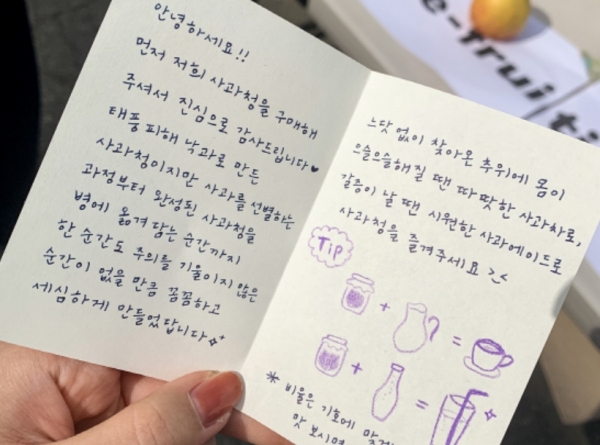 안녕하세요!!
먼저 저희 사과청을 구매해
주셔서 진심으로 감사드립니다♥
태풍 피해 낙과로 만든
사과청이지만 사과를 선별하는
과정부터 완성된 사과청을
병에 옮겨 담는 순간까지
한 순간도 주의를 기울이지 않은
순간이 없을 만큼 꼼꼼하고
세심하게 만들었답니다✧
느닷없이 찾아온 추위에 몸이
으슬으슬해질 땐 따땃한 사과차로,
갈증이 날 땐 시원한 사과에이드로
사과청을 즐겨주세요 ><
Tip
+ =
+ =
* 비율은 기호에 맞게
맛 보시면
e-fruit